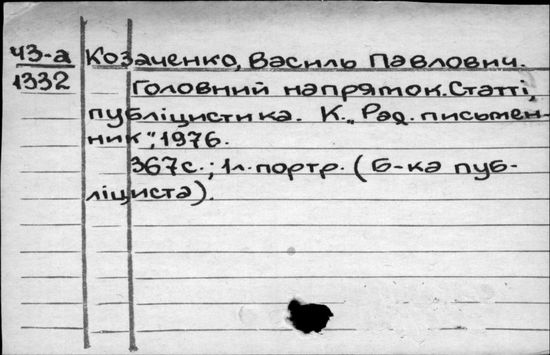 ЧЗ-а Козаченко, Василь Павлович.
1332 Головний напрямок. Статті,
публіцистика. К., "Рад. письмен-
ник", 1976.
367с.; 1л. портр. (Б-ка пуб-
ліциста).